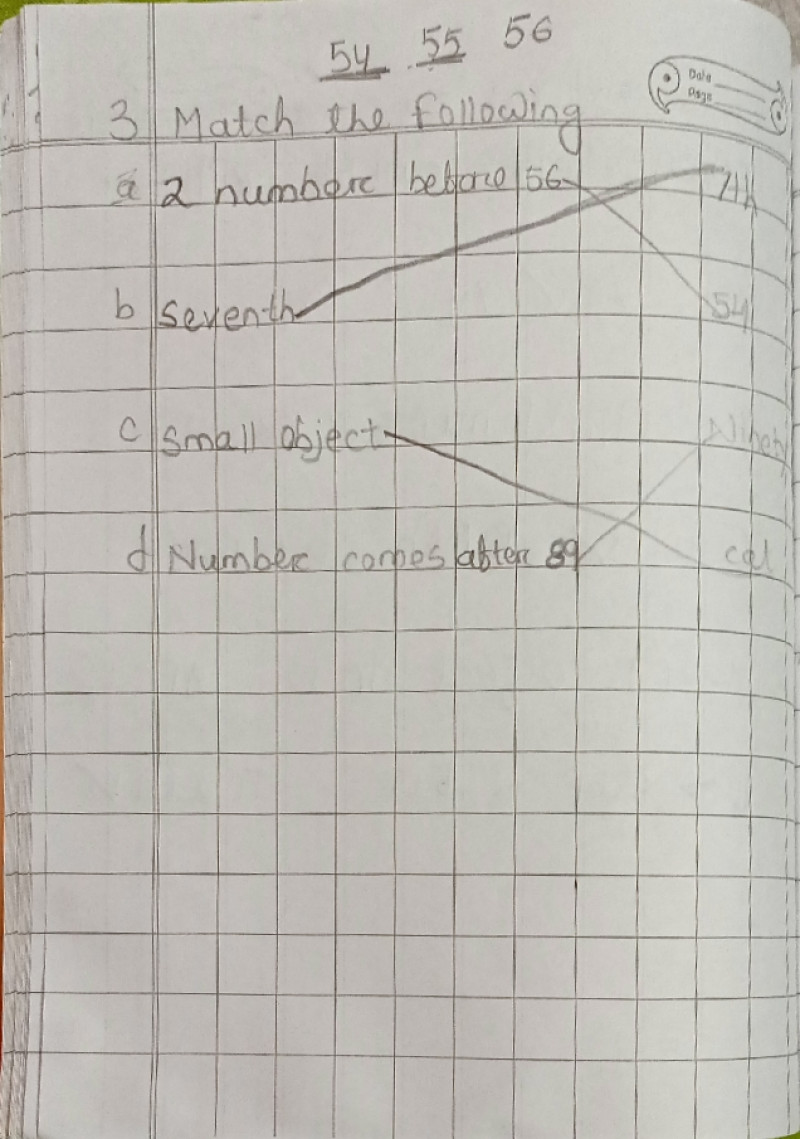 54 55 56
Date
Page
3 Match the following
a 2 number before 56 7th
b seventh 54
c small object Ninety
d Number comes after 89